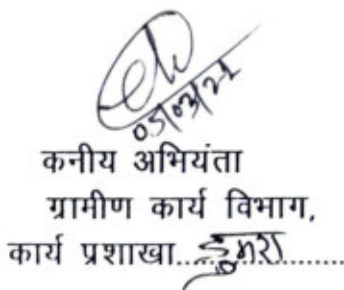 05/03/21
कनीय अभियंता
ग्रामीण कार्य विभाग,
कार्य प्रशाखा..................